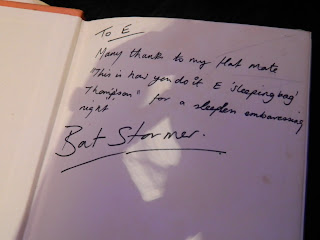 To E
Many thank to my flat mate
This is how you do it E 'sleeping bag'
Thompson" for a sleepless embarressing
night'
Bat Stormer.